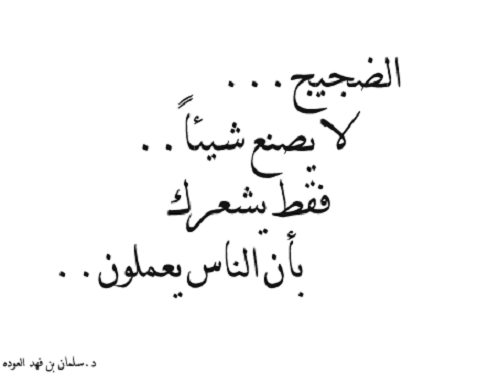 الضجيج . . .
لا يصنع شيئاً . .
فقط يشعرك
بأن الناس يعملون . .
د . سلمان بن فهد العوده